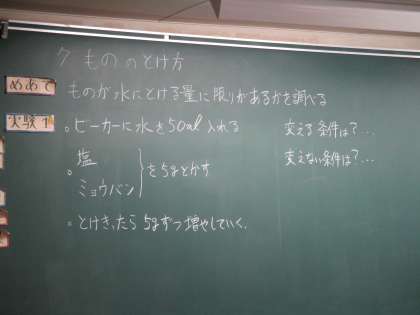 7 もののとけ方
めあて ものが水にとける量に限りがあるかを調べる
実験1 。ビーカーに水を50ml入れる
変える条件は?...
変えない条件は?...
。塩
ミョウバン } を5gとかす
。とけきったら5gずつ増やしていく.